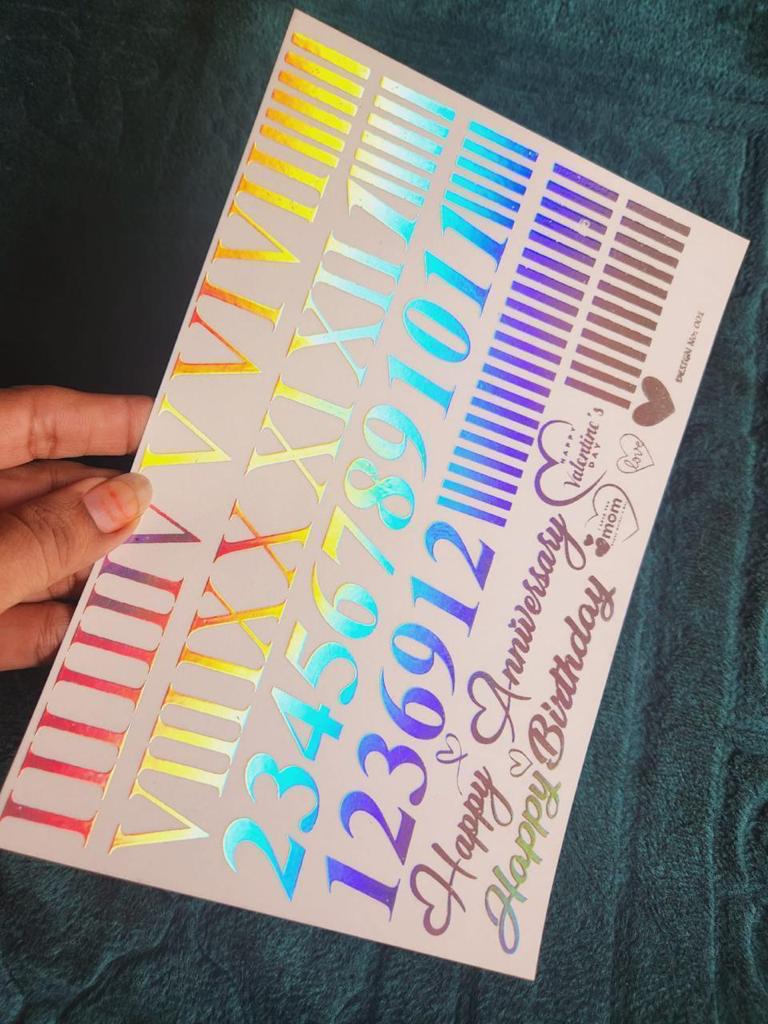 I II III IV V VI VII
VIII IX X XI XII 1
2 3 4 5 6 7 8 9 10 11
12 3 6 9 12
Happy Anniversary
Happy Birthday
HAPPY
Valentine's
DAY
love
mom
DESIGN No: 001